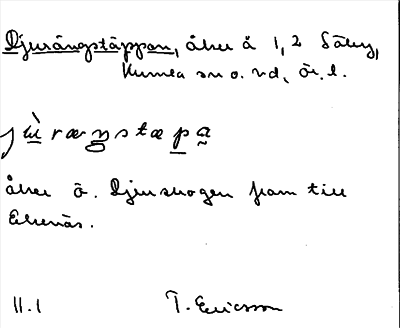 Djurängstäppan, åker å 1, 2 Säby,
Kumla sn o. hd, Ör. l.
jùræŋstæpa
åker ö. Djurskogen fram till
Ekenäs.
11.1 T. Ericsson